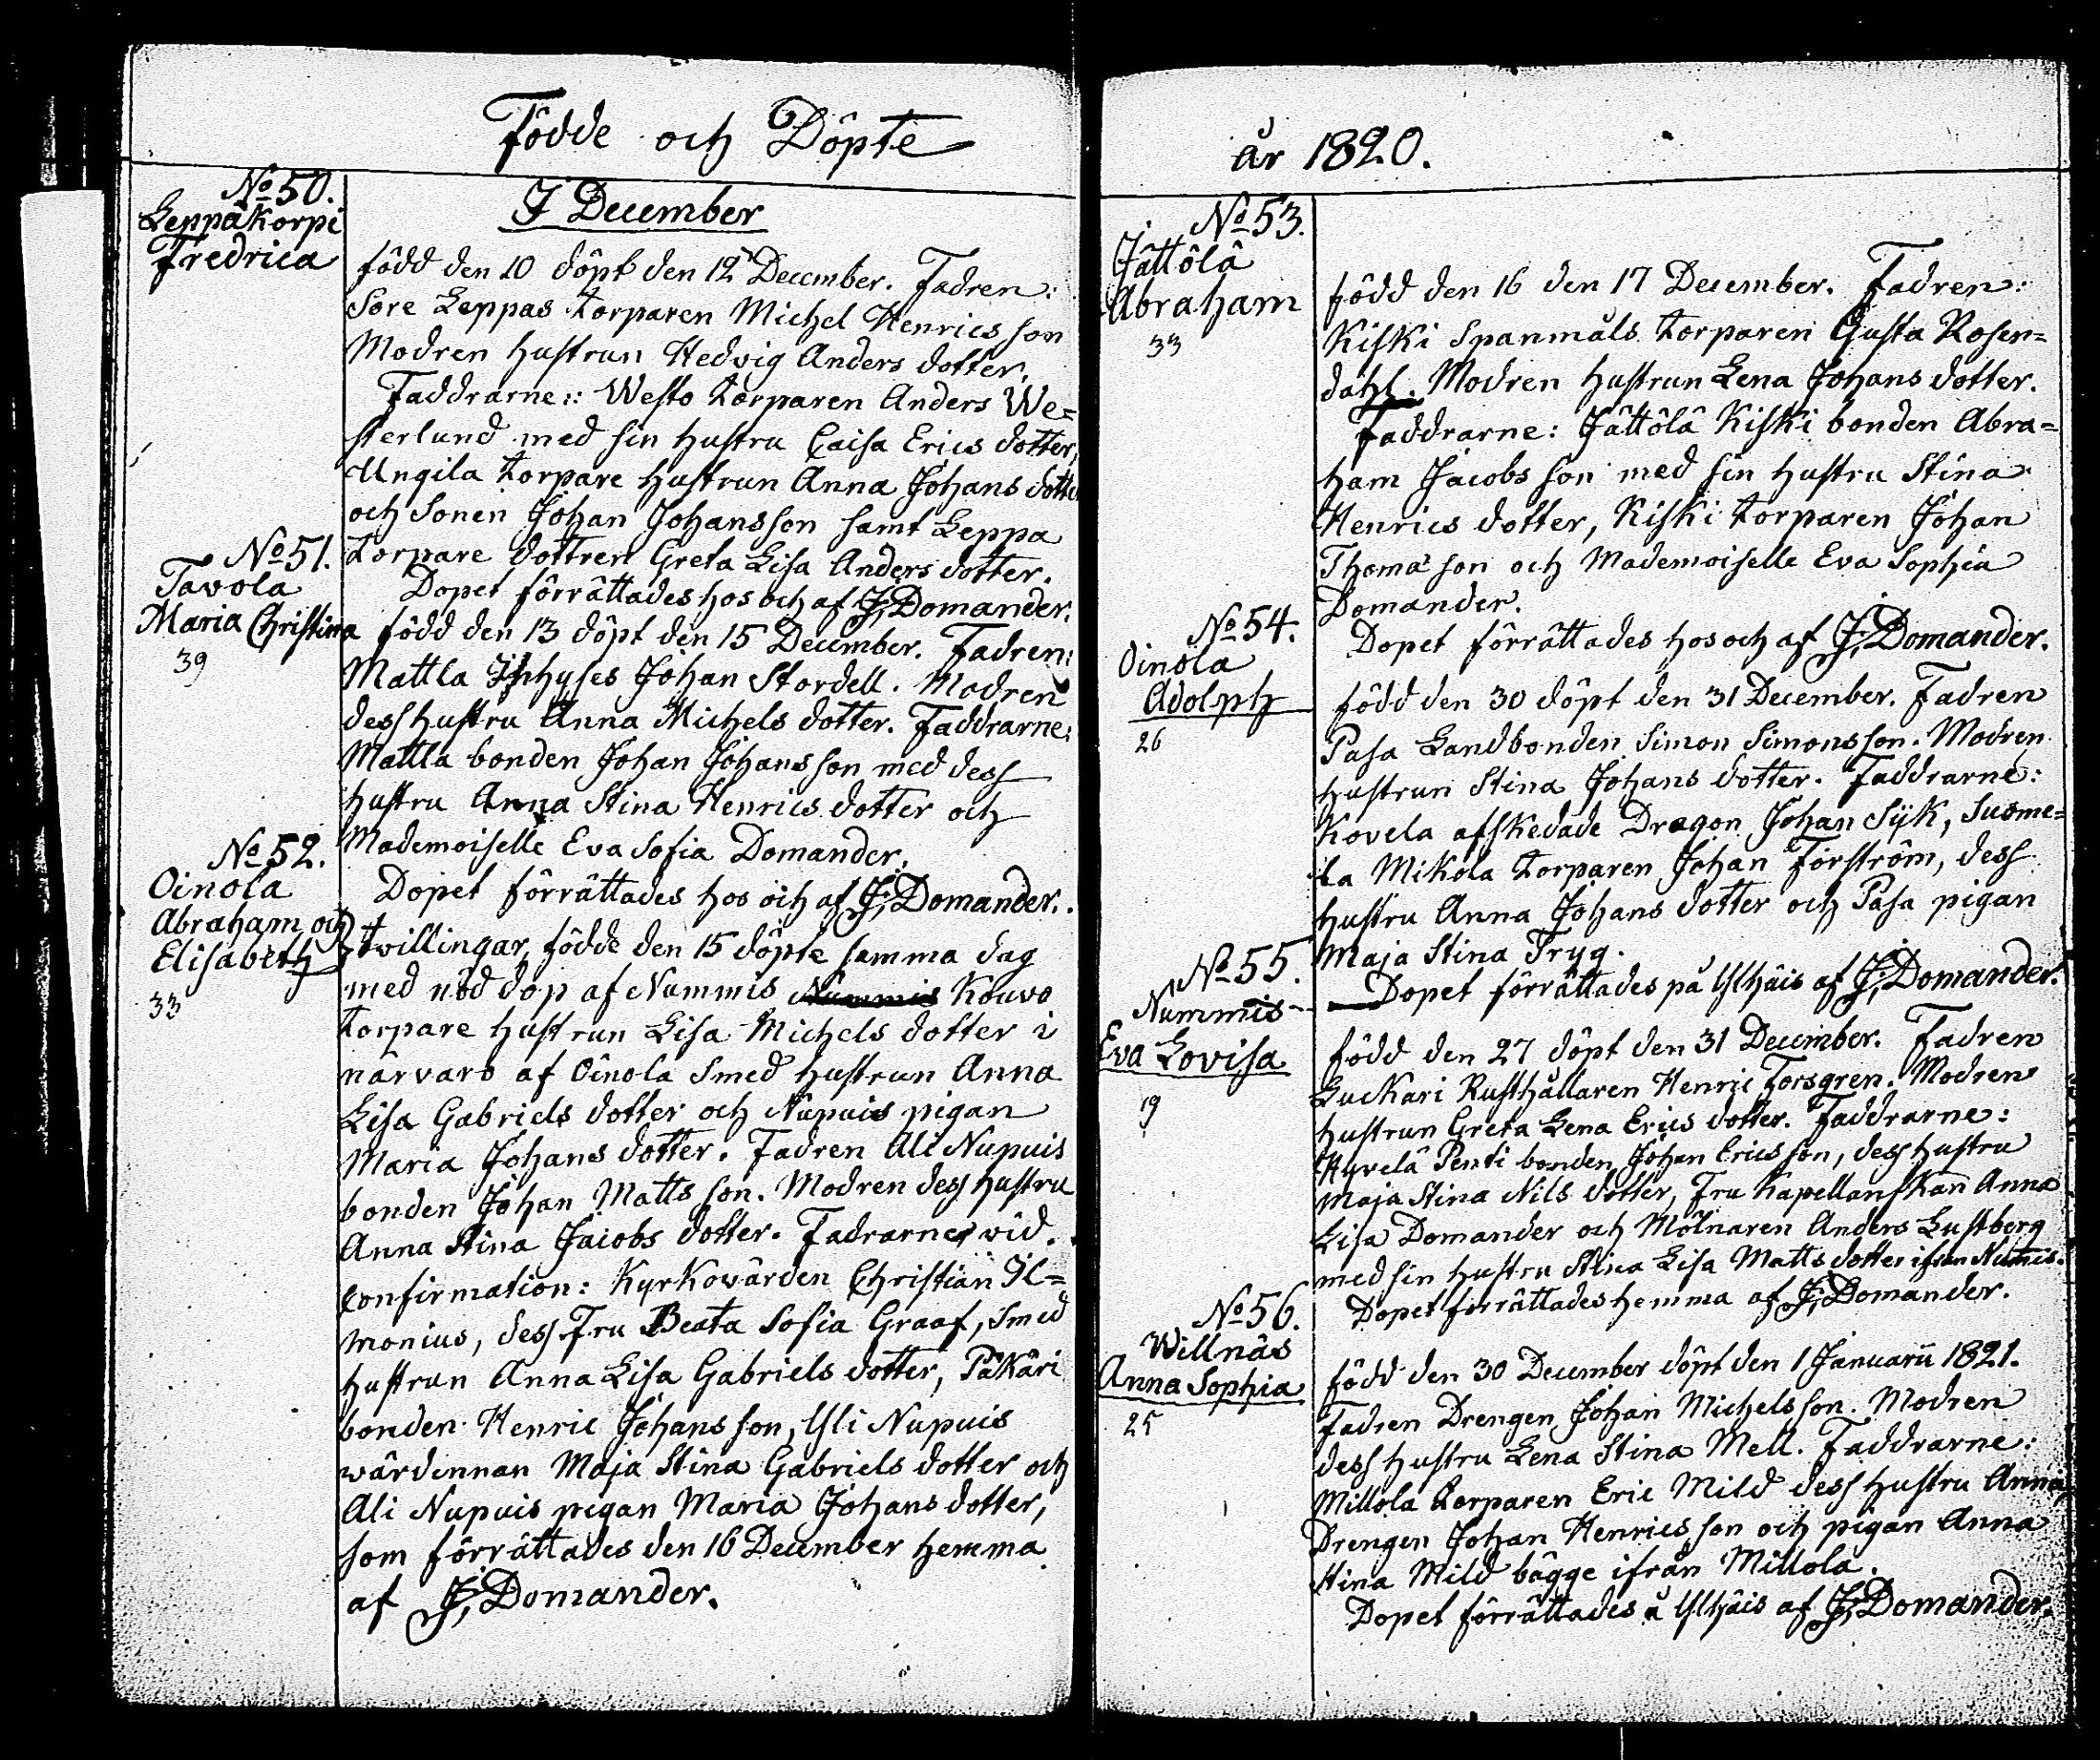 Födde och Döpte
I December
No 50.
Leppäkorpi
Fredrica
född den 10 döpt den 12 December. Fadren:
Sore Leppas torparen Michel Henrics son
Modren hustrun Hedvig Anders dotter.
Faddrarne: Westo torparen Anders We=
sterlund med sin hustru Caisa Erics dotter,
Ungila torpare hustrun Anna Johans dotter
och Sonen Johan Johansson samt Leppa
torpare dottren Greta Lisa Anders dotter.
Dopet förrättades hos och af J. Domander.
No 51.
Tavola
Maria Christina
39
född den 13 döpt den 15 December. Fadren:
Mattla Inhyses Johan Stordell. Modren
dess hustru Anna Michels dotter. Faddrarne:
Mattla bonden Johan Johansson med dess
hustru Anna Stina Henrics dotter och
Mademoiselle Eva Sofia Domander.
Dopet förrättades hos och af J. Domander.
No 52.
Oinola
Abraham och
Elisabeth
33
twillingar, födde den 15 döpte samma dag
med nöd dop af Nummis Nummis Kouvo
torpare hustrun Lisa Michels dotter i
närvaro af Oinola Smed hustrun Anna
Lisa Gabriels dotter och Nupuis pigan
Maria Johans dotter. Fadren Ali Nupuis
bonden Johan Matts son. Modren dess hustru
Anna Stina Jacobs dotter. Fadrarne wid
Confirmation: Kyrkowärden Christian Il=
monius, dess Fru Beata Sofia Graaf, Smed
hustrun Anna Lisa Gabriels dotter, Päkäri
bonden Henric Johansson, Yli Nupuis
wärdinnan Maja Stina Gabriels dotter och
Ali Nupuis pigan Maria Johans dotter,
som förrättades den 16 December hemma
af J. Domander.
år 1820.
No 53.
Jättölä
Abraham
33
född den 16 den 17 December. Fadren:
Kiski Spanmåls torparen Gusta Rosen=
dahl. Modren hustrun Lena Johans dotter.
Faddrarne: Jättölä Kiski bonden Abra=
ham Jacobs son med sin hustru Stina
Henrics dotter, Kiski torparen Johan
Thomas son och Mademoiselle Eva Sophia
Domander.
Dopet förrättades hos och af J. Domander.
No 54.
Oinola
Adolph
26
född den 30 döpt den 31 December. Fadren
Pasa Landbonden Simon Simonsson. Modren
hustrun Stina Johans dotter. Faddrarne:
Kovela afskedade Dragon Johan Syk, Suome=
la Mikola torparen Johan Forström, dess
hustru Anna Johans dotter och Pasa pigan
Maja Stina Tryg.
Dopet förrättades på Ylhäis af J. Domander.
No 55.
Nummis
Eva Lovisa
19
född den 27 döpt den 31 December. Fadren
Luckari Rusthållaren Henric Forsgren. Modren
hustrun Greta Lena Erics dotter. Faddrarne:
Hyvelä Penti bonden Johan Ericsson, dess hustru
Maja Stina Nils dotter, Fru Kapellanskan Anna
Lisa Domander och Mölnaren Anders Lustberg
med sin hustru Stina Lisa Matts dotter ifrån Nummis.
Dopet förrättades hemma af J. Domander.
No 56.
Willnäs
Anna Sophia
25
född den 30 December döpt den 1 Januarii 1821.
Fadren Drengen Johan Michelsson. Modren
dess hustru Lena Stina Mell. Faddrarne:
Millola torparen Eric Mild dess hustru Anna,
Drengen Johan Henrics son och pigan Anna
Stina Mild bägge ifrån Millola.
Dopet förrättades å Ylhäis af J. Domander.